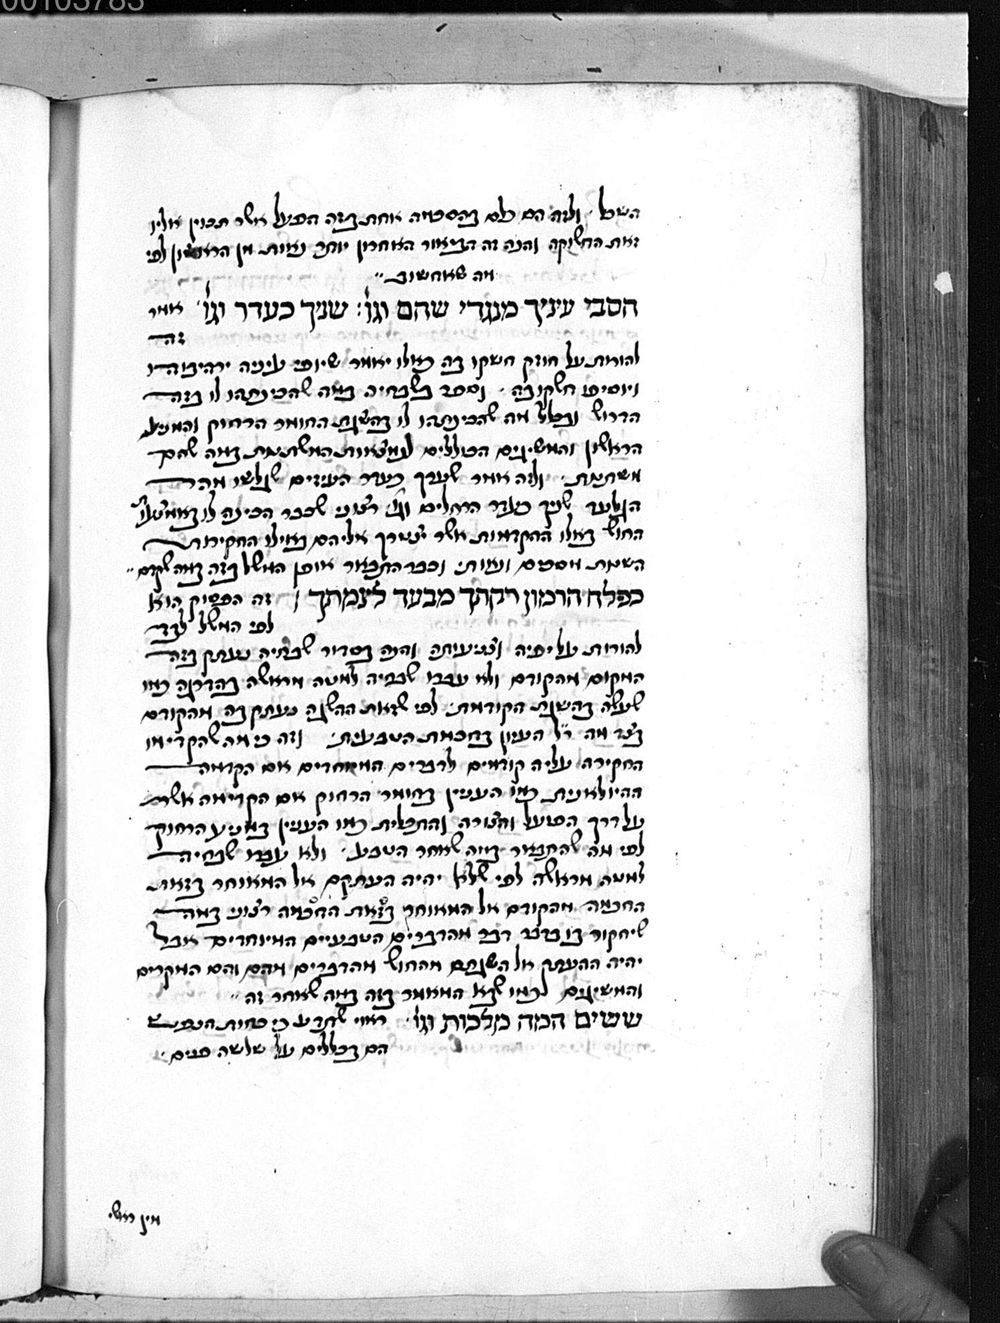 00103783
השכל . ולזה הם כלם בהסכמה אחת בזה הפועל אשר תכוין אליו
זאת החשוקה והנה זה הביאור האחרון יותר נאות מן הראשון לפי
מה שאחשוב
הסבי עיניך מנגדי שהם וגו' : שניך כעדר וגו' . אמר
זה
להורות על חוזק חשקו בה כאלו יאמר שיופי עיניה ירהיבוהו
ויוסיפו חשקו בה . וספר בשבחיה במה שהכינתהו לו בזה
הדרוש ובכלל מה שהכינתהו לו בהשגת החומר הרחוק והמניע
הראשון והמשיגים הכוללים לנמצאות המשתתפות במה שהם
משתתפות . ולזה אמר שערך כעדר העזים שגלשו מהר
הגלעד שניך כעדר הרחלים וגו' רצוני שכבר הכינה לו באמצעות
החוש באלו ההקדמות אשר יצטרך אליהם באילו החקירות
השגות מסכימות ונאות . וכבר התבאר אופן המשל בזה במה שקדם
כפלח הרמון רקתך מבעד לצמתך זה הפסוק הוא
לפי המשל לבד
להורות על יפיה וצניעותה והנה בסדור שבחיה נעתק בזה
המקום מהקודם ולא עברו שבחיה למטה מראשה בהדרגה כמו
שעשה בהשגות הקודמות . לפי שזאת ההשגה נעתק בה מהקודם
בצד מה ר"ל העיון בחכמת הטבעית . וזה כי מה שהקדימו
החקירה עליה קודמים לדברים המיוחדים אם הקדמה
ההיולאנית כמו הענין בחומר הרחוק אם הקדימה אשר
על דרך הפועל והצורה והתכלית כמו הענין במניע הרחוק
לפי מה שהתבאר במה שאחר הטבע . ולא עברו שבחיה
למטה מראשה לפי שלא יהיה העתקם אל המאוחר בזאת
החכמה מהקודם אל המאוחר בזאת החכמה רצוני במה
שיחקור בו בדבר דבר מהדברים הטבעיים המיוחדים אבל
יהיה ההעתק אל השגתם מהחוש מהדברים מהם והם המקרים
והמשיגים לכמו שבא המאמר בזה במה שאחר זה
ששים המה מלכות וגו' . ראוי שתדע כי כחות הנפש
הם בכללים על שלשה פנים .